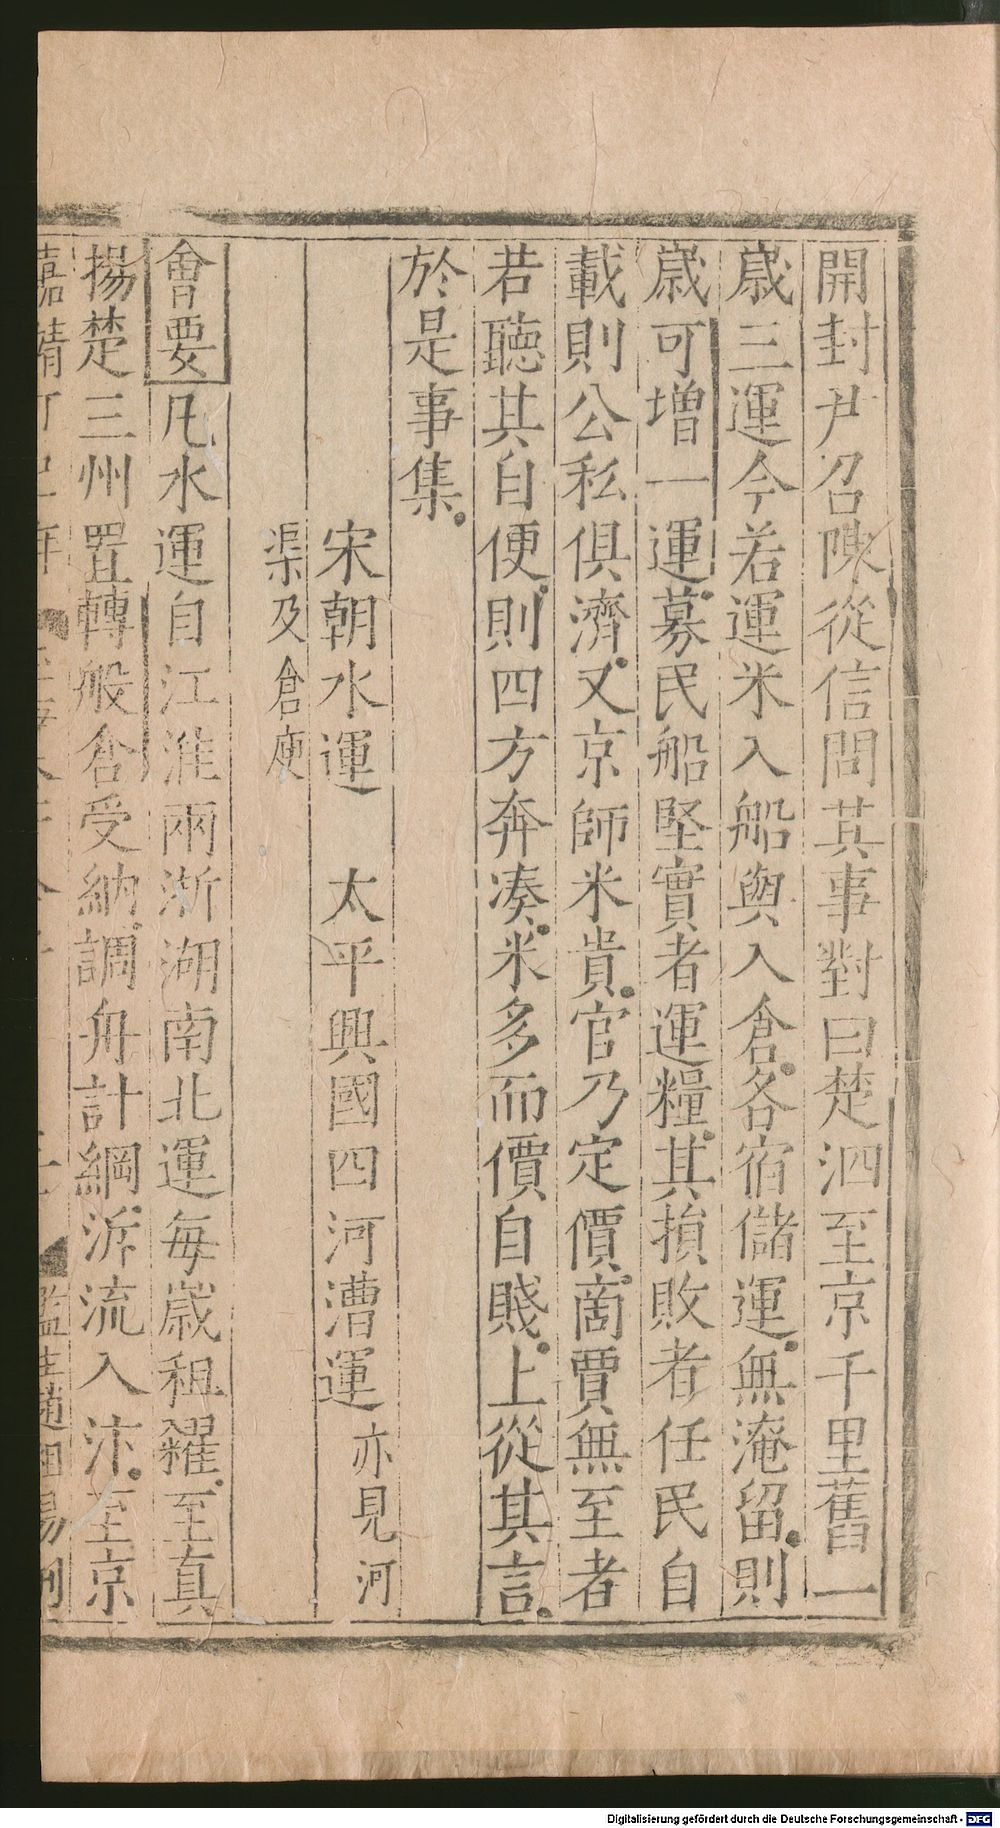 開封尹召陳從信問其事對曰楚泗至京千里舊一
歲三運今若運米入船輿入倉各宿儲運無淹留則
歲可增一運募民船堅實者運糧其損敗者任民自
載則公私俱濟又京師米貴官乃定價啇賈無至者
若聽其自便則四方奔凑米多而價自賤上從其言
於是事集
宋朝水運 太平興國四河漕運亦見河
渠及倉庾
會要凡水運自江淮兩浙湖南北運每歲租糴至真
揚楚三州置轉般倉受納調舟計綱泝流入汴至京
嘉靖
監生趙
Digitalisierung gefördert durch die Deutsche Forschungsgemeinschaft - DFG